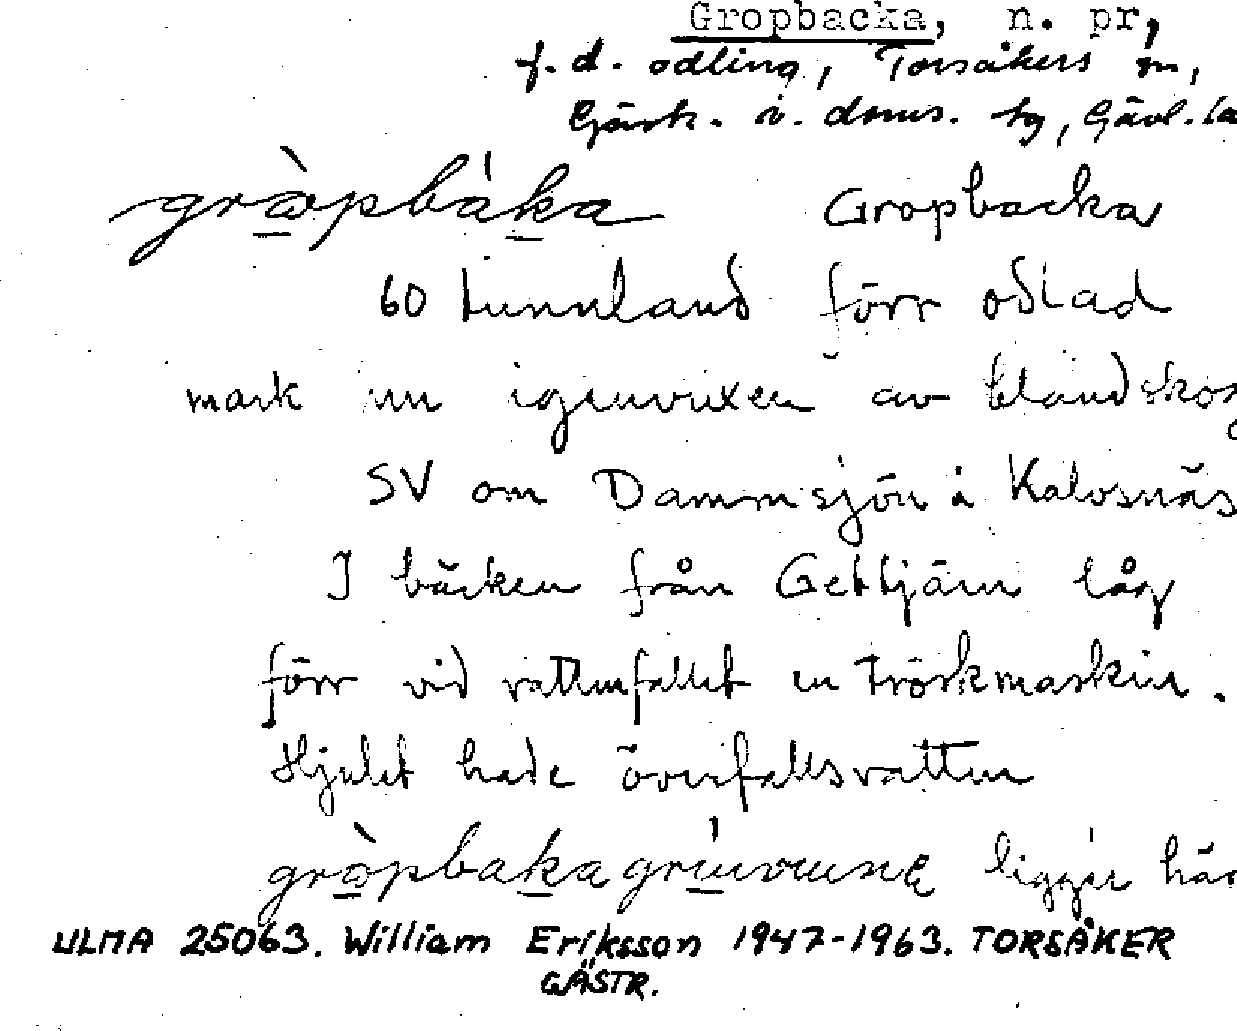 Gropbacka, n. pr,
f. d. odling, Torsåkers sn,
Gästr. ö. doms. hg, Gävl. lä
gròpbáka Gropbacka
60 tunnland förr odlad
mark nu igenvuxen av blandskog
SV om Dammsjön i Kalvsnäs
I bäcken från Gettjärn låg
förr vid vattenfallet en tröskmaskin.
Hjulet hade överfallsvatten
gròpbaka ligger här
ULMA 25063. William Eriksson 1947-1963. TORSÅKER
GÄSTR.